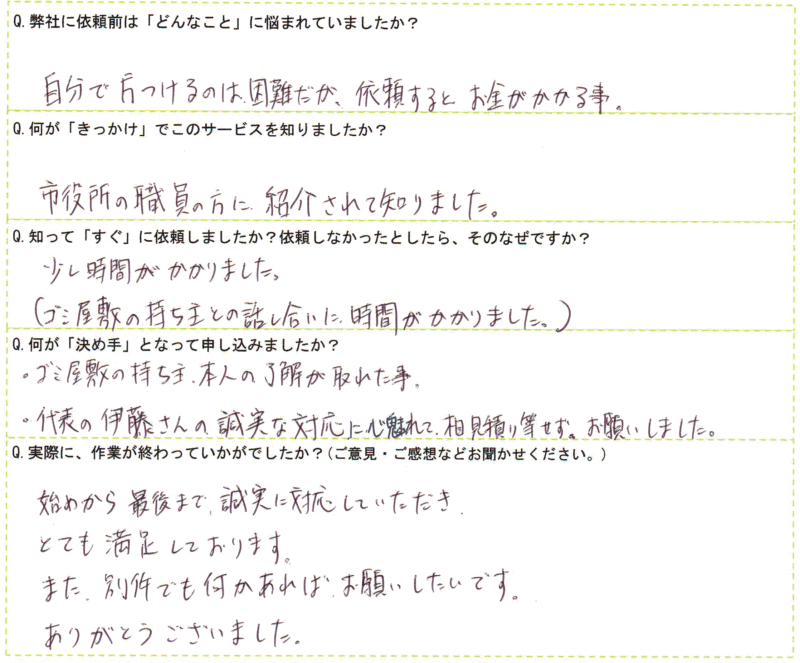 Q. 弊社に依頼前は「どんなこと」に悩まれていましたか？
自分で片つけるのは、困難だが、依頼すると お金がかかる事。
Q. 何が「きっかけ」でこのサービスを知りましたか？
市役所の職員の方に、紹介されて知りました。
Q. 知って「すぐ」に依頼しましたか？依頼しなかったとしたら、そのなぜですか？
少し時間がかかりました。
(ゴミ屋敷の持ち主との話し合いに、時間がかかりました。)
Q. 何が「決め手」となって申し込みましたか？
・ゴミ屋敷の持ち主、本人の了解が取れた事。
・代表の伊藤さんの誠実な対応に心魅れて、相見積り等せず。お願いしました。
Q. 実際に、作業が終わっていかがでしたか？（ご意見・ご感想などお聞かせください。）
始めから最後まで、誠実に対応していただき、
とても満足しております。
また、別件でも何かあれば、お願いしたいです。
ありがとうございました。